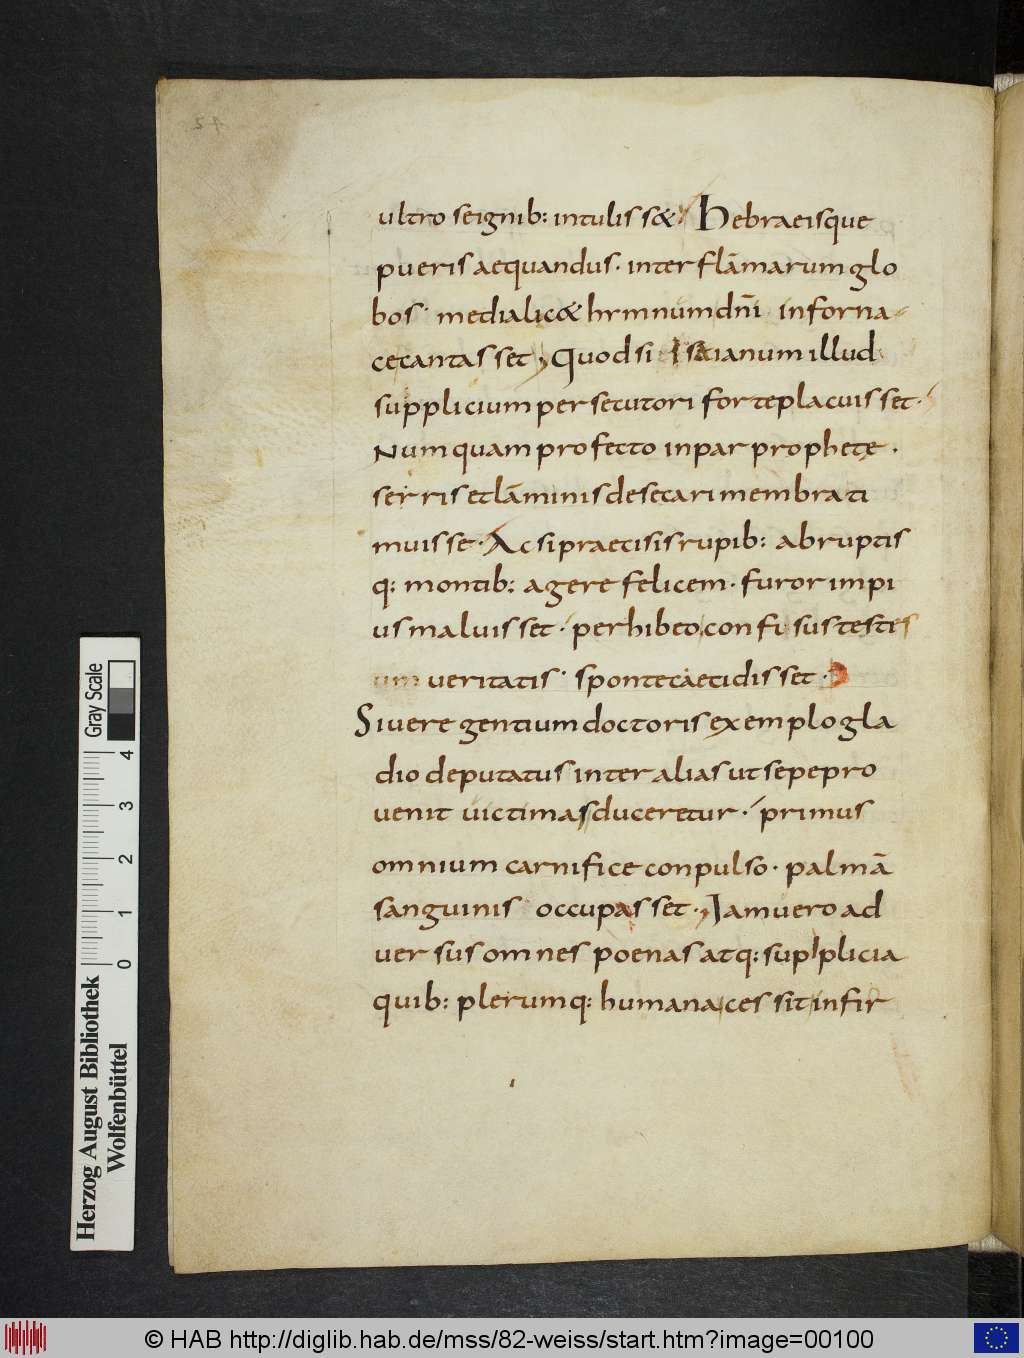 ultro se ignib: intulisset; Hebraeisque
pueris aequandus · inter flāmarum glo
bos · medialicet hrmnum dn̄i in forna
ce cantasset; Quod si isaianum illud
supplicium persecutori forte placuisset ·
Numquam profecto inpar prophetę ·
serris et lāminis desecari membra ti
muisse · Ac si praecisis rupib: abruptis
q: montib: agere felicem · furor impi
us maluisset · perhibeto confisus testes
um veritatis · sponte caecidisset ·
Si vere gentium doctoris exemplo gla
dio deputatus inter alias ut sepe pro
venit victimas duceretur · primus
omnium carnifice conpulso · palmā
sanguinis occupasset ·; Iam vero ad
versus omnes poenas atq: supplicia
quib: plerumq: humana cessit infir
Herzog August Bibliothek
Wolfenbüttel
Gray Scale
0 1 2 3 4
© HAB http://diglib.hab.de/mss/82-weiss/start.htm?image=00100